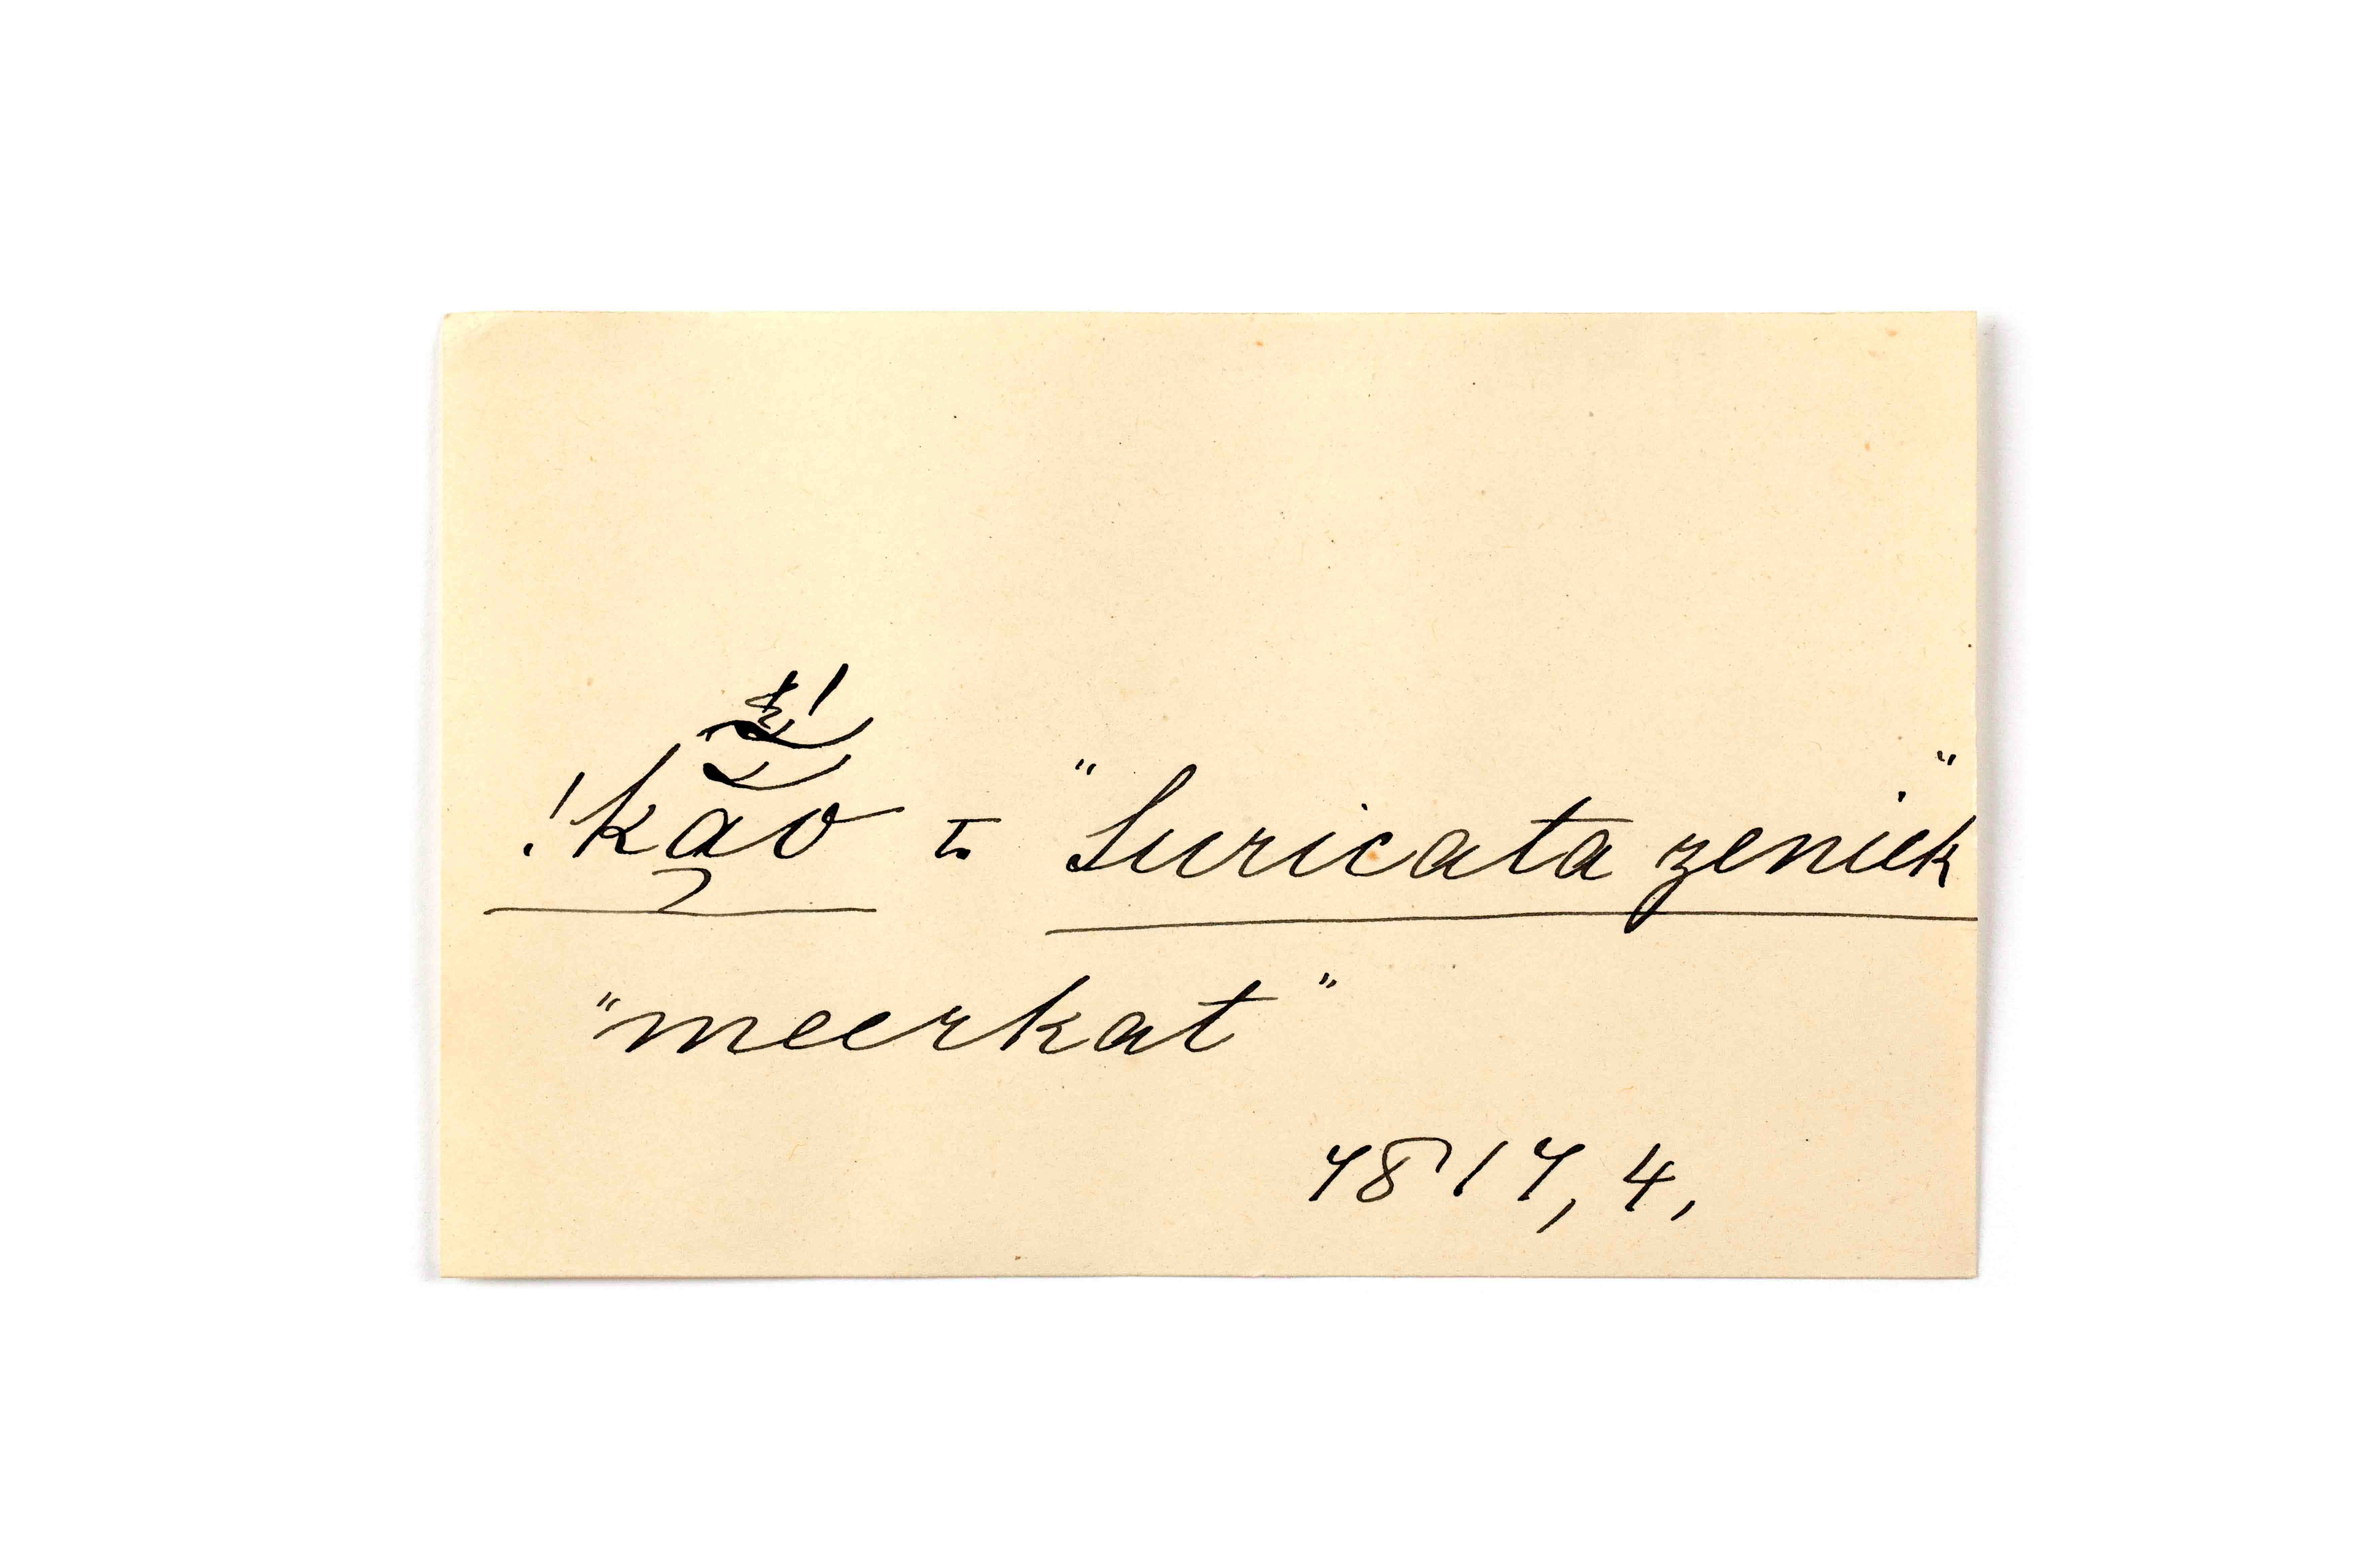 !kao = "Suricata zenick"
"meerkat"
4817, 4,